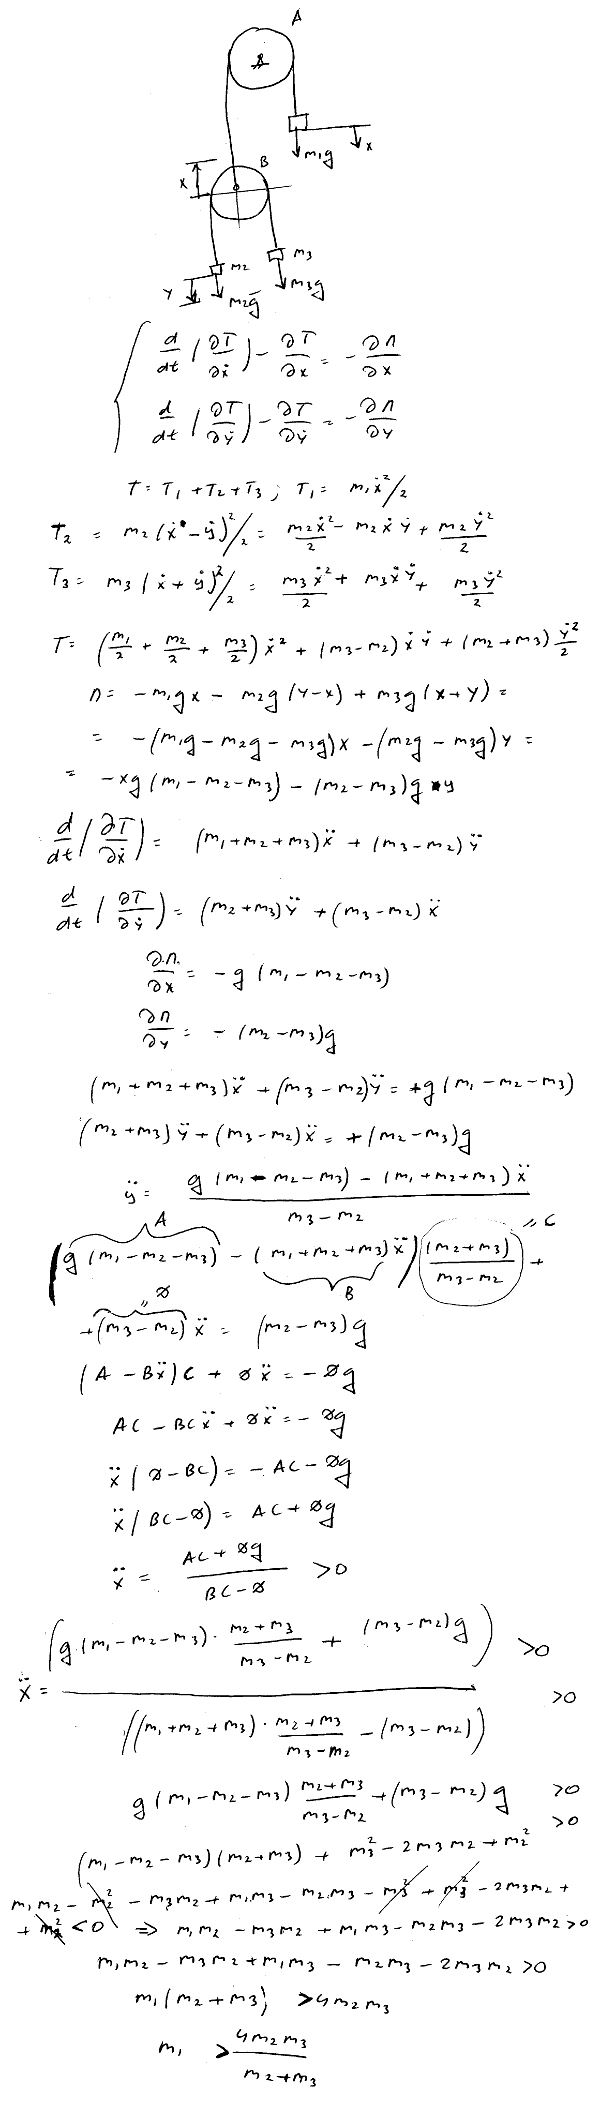 A
A
m₁g
x
B
x
m₂
m₃
y
m₂g
m₃g
d/dt (∂T/∂ẋ) - ∂T/∂x = - ∂Π/∂x
d/dt (∂T/∂ẏ) - ∂T/∂y = - ∂Π/∂y
T = T₁ + T₂ + T₃ ; T₁ = m₁ẋ²/2
T₂ = m₂(ẋ - ẏ)²/2 = m₂ẋ²/2 - m₂ẋẏ + m₂ẏ²/2
T₃ = m₃(ẋ + ẏ)²/2 = m₃ẋ²/2 + m₃ẋẏ + m₃ẏ²/2
T = (m₁/2 + m₂/2 + m₃/2)ẋ² + (m₃-m₂)ẋẏ + (m₂+m₃)ẏ²/2
Π = -m₁gx - m₂g(y-x) + m₃g(x+y) =
= -(m₁g - m₂g - m₃g)x - (m₂g - m₃g)y =
= -xg(m₁-m₂-m₃) - (m₂-m₃)g y
d/dt (∂T/∂ẋ) = (m₁+m₂+m₃)ẍ + (m₃-m₂)ÿ
d/dt (∂T/∂ẏ) = (m₂+m₃)ÿ + (m₃-m₂)ẍ
∂Π/∂x = -g(m₁-m₂-m₃)
∂Π/∂y = -(m₂-m₃)g
(m₁+m₂+m₃)ẍ + (m₃-m₂)ÿ = +g(m₁-m₂-m₃)
(m₂+m₃)ÿ + (m₃-m₂)ẍ = +(m₂-m₃)g
ÿ = (g(m₁-m₂-m₃) - (m₁+m₂+m₃)ẍ)/(m₃-m₂)
A
= C
(g(m₁-m₂-m₃) - (m₁+m₂+m₃)ẍ) (m₂+m₃)/(m₃-m₂) +
= Ø
B
+(m₃-m₂)ẍ = (m₂-m₃)g
(A - Bẍ)C + Øẍ = -Øg
AC - BCẍ + Øẍ = -Øg
ẍ(Ø-BC) = -AC - Øg
ẍ(BC-Ø) = AC + Øg
ẍ = (AC + Øg)/(BC-Ø) > 0
ẍ = (g(m₁-m₂-m₃)·(m₂+m₃)/(m₃-m₂) + (m₃-m₂)g) / ((m₁+m₂+m₃)·(m₂+m₃)/(m₃-m₂) - (m₃-m₂)) >0
>0
g(m₁-m₂-m₃) (m₂+m₃)/(m₃-m₂) + (m₃-m₂)g >0
>0
(m₁-m₂-m₃)(m₂+m₃) + m₃² - 2m₃m₂ + m₂²
m₁m₂ - m₂² - m₃m₂ + m₁m₃ - m₂m₃ - m₃² + m₃² - 2m₃m₂ +
+ m₂² <0 ⇒ m₁m₂ - m₃m₂ + m₁m₃ - m₂m₃ - 2m₃m₂ >0
m₁m₂ - m₃m₂ + m₁m₃ - m₂m₃ - 2m₃m₂ >0
m₁(m₂+m₃) > 4m₂m₃
m₁ > 4m₂m₃/(m₂+m₃)